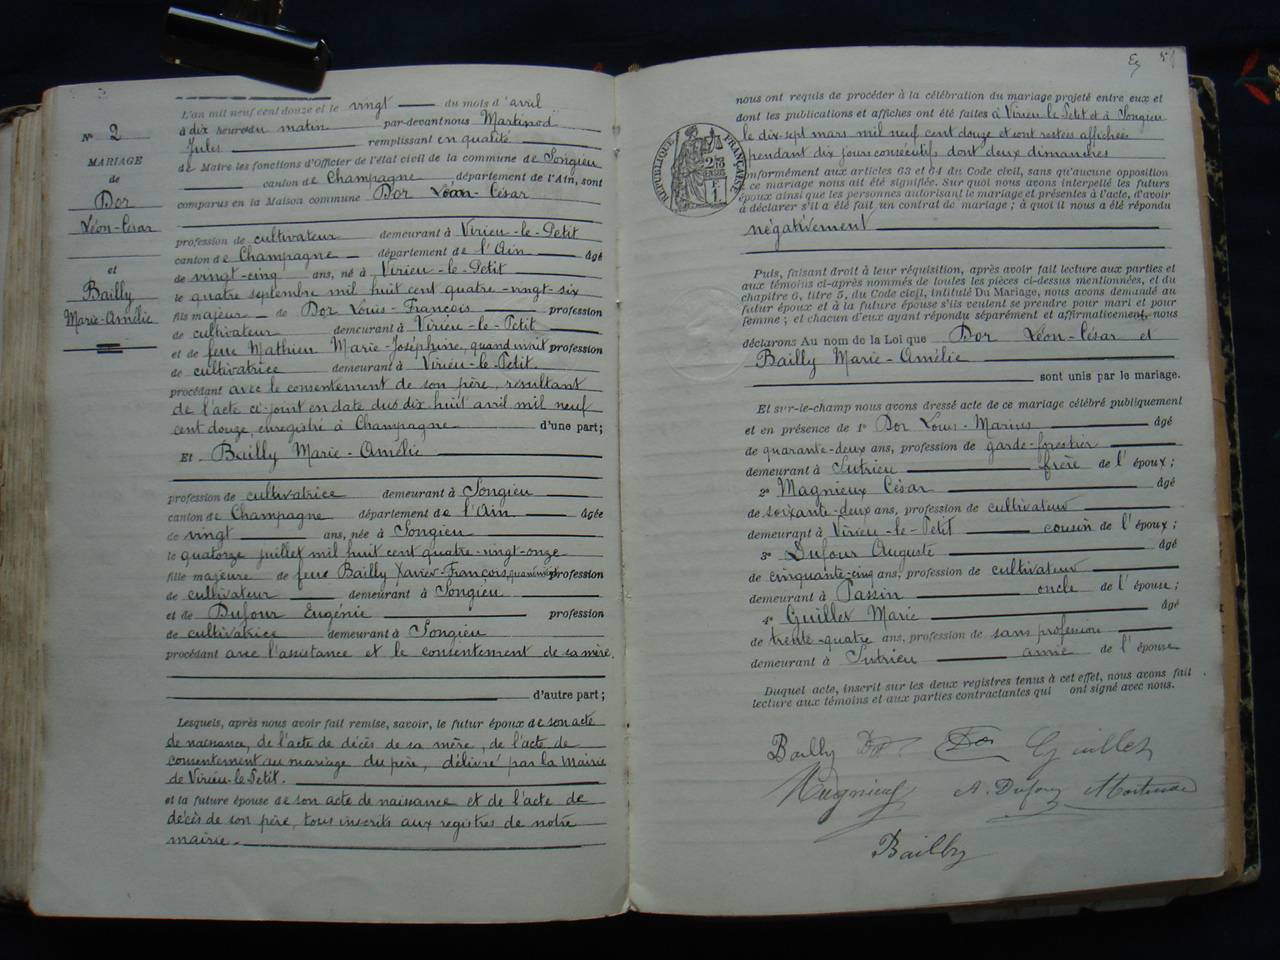 N° 2
MARIAGE
de
Dor
Léon-César
et
Bailly
Marie-Amélie
L'an mil neuf cent douze et le vingt du mois d'avril
à dix heures du matin par-devant nous Martinod
Jules remplissant en qualité
de Maire les fonctions d'Officier de l'état civil de la commune de Songieu
canton de Champagne département de l'Ain, sont
comparus en la Maison commune Dor Léon-César
profession de cultivateur demeurant à Virieu-le-Petit
canton de Champagne département de l'Ain âgé
de vingt-cinq ans, né à Virieu-le-Petit
le quatre septembre mil huit cent quatre-vingt-six
fils majeur de Dor Louis-François profession
de cultivateur demeurant à Virieu-le-Petit
et de feue Mathieu Marie-Joséphine, quand vivait profession
de cultivatrice demeurant à Virieu-le-Petit.
procédant avec le consentement de son père, résultant
de l'acte ci-joint en date du dix huit avril mil neuf
cent douze, enregistré à Champagne d'une part;
Et Bailly Marie-Amélie
profession de cultivatrice demeurant à Songieu
canton de Champagne département de l'Ain âgée
de vingt ans, née à Songieu
le quatorze juillet mil huit cent quatre-vingt-onze
fille majeure de feu Bailly Xavier-François, quand vivait profession
de cultivateur demeurant à Songieu
et de Dufour Eugénie profession
de cultivatrice demeurant à Songieu
procédant avec l'assistance et le consentement de sa mère.
d'autre part;
Lesquels, après nous avoir fait remise, savoir, le futur époux de son acte
de naissance, de l'acte de décès de sa mère, de l'acte de
consentement au mariage du père, délivré par la Mairie
de Virieu-le-Petit.
et la future épouse de son acte de naissance et de l'acte de
décès de son père, tous inscrits aux registres de notre
mairie.
nous ont requis de procéder à la célébration du mariage projeté entre eux et
dont les publications et affiches ont été faites à Virieu-le-Petit et à Songieu
le dix sept mars mil neuf cent douze et sont restées affichées
pendant dix jours consécutifs dont deux dimanches
conformément aux articles 63 et 64 du Code civil, sans qu'aucune opposition
à ce mariage nous ait été signifiée. Sur quoi nous avons interpellé les futurs
époux ainsi que les personnes autorisant le mariage et présentes à l'acte, d'avoir
à déclarer s'il a été fait un contrat de mariage; à quoi il nous a été répondu
négativement
RÉPUBLIQUE FRANÇAISE
Puis, faisant droit à leur réquisition, après avoir fait lecture aux parties et
aux témoins ci-après nommés de toutes les pièces ci-dessus mentionnées, et du
chapitre 6, titre 5, du Code civil, intitulé Du Mariage, nous avons demandé au
futur époux et à la future épouse s'ils veulent se prendre pour mari et pour
femme; et chacun d'eux ayant répondu séparément et affirmativement, nous
déclarons Au nom de la Loi que Dor Léon-César et
Bailly Marie-Amélie
sont unis par le mariage.
Et sur-le-champ nous avons dressé acte de ce mariage célébré publiquement
et en présence de 1° Dor Louis-Marius âgé
de quarante-deux ans, profession de garde-forestier
demeurant à Sutrieu frère de l'époux;
2° Magnieux César âgé
de soixante-deux ans, profession de cultivateur
demeurant à Virieu-le-Petit cousin de l'époux;
3° Dufour Auguste âgé
de cinquante-cinq ans, profession de cultivateur
demeurant à Passin oncle de l'épouse;
4° Guillet Marie âgé
de trente-quatre ans, profession de sans profession
demeurant à Sutrieu amie de l'épouse
Duquel acte, inscrit sur les deux registres tenus à cet effet, nous avons fait
lecture aux témoins et aux parties contractantes qui ont signé avec nous.
Bailly Dor Dor Guillet
Magnieux A. Dufour Martinod
Bailly